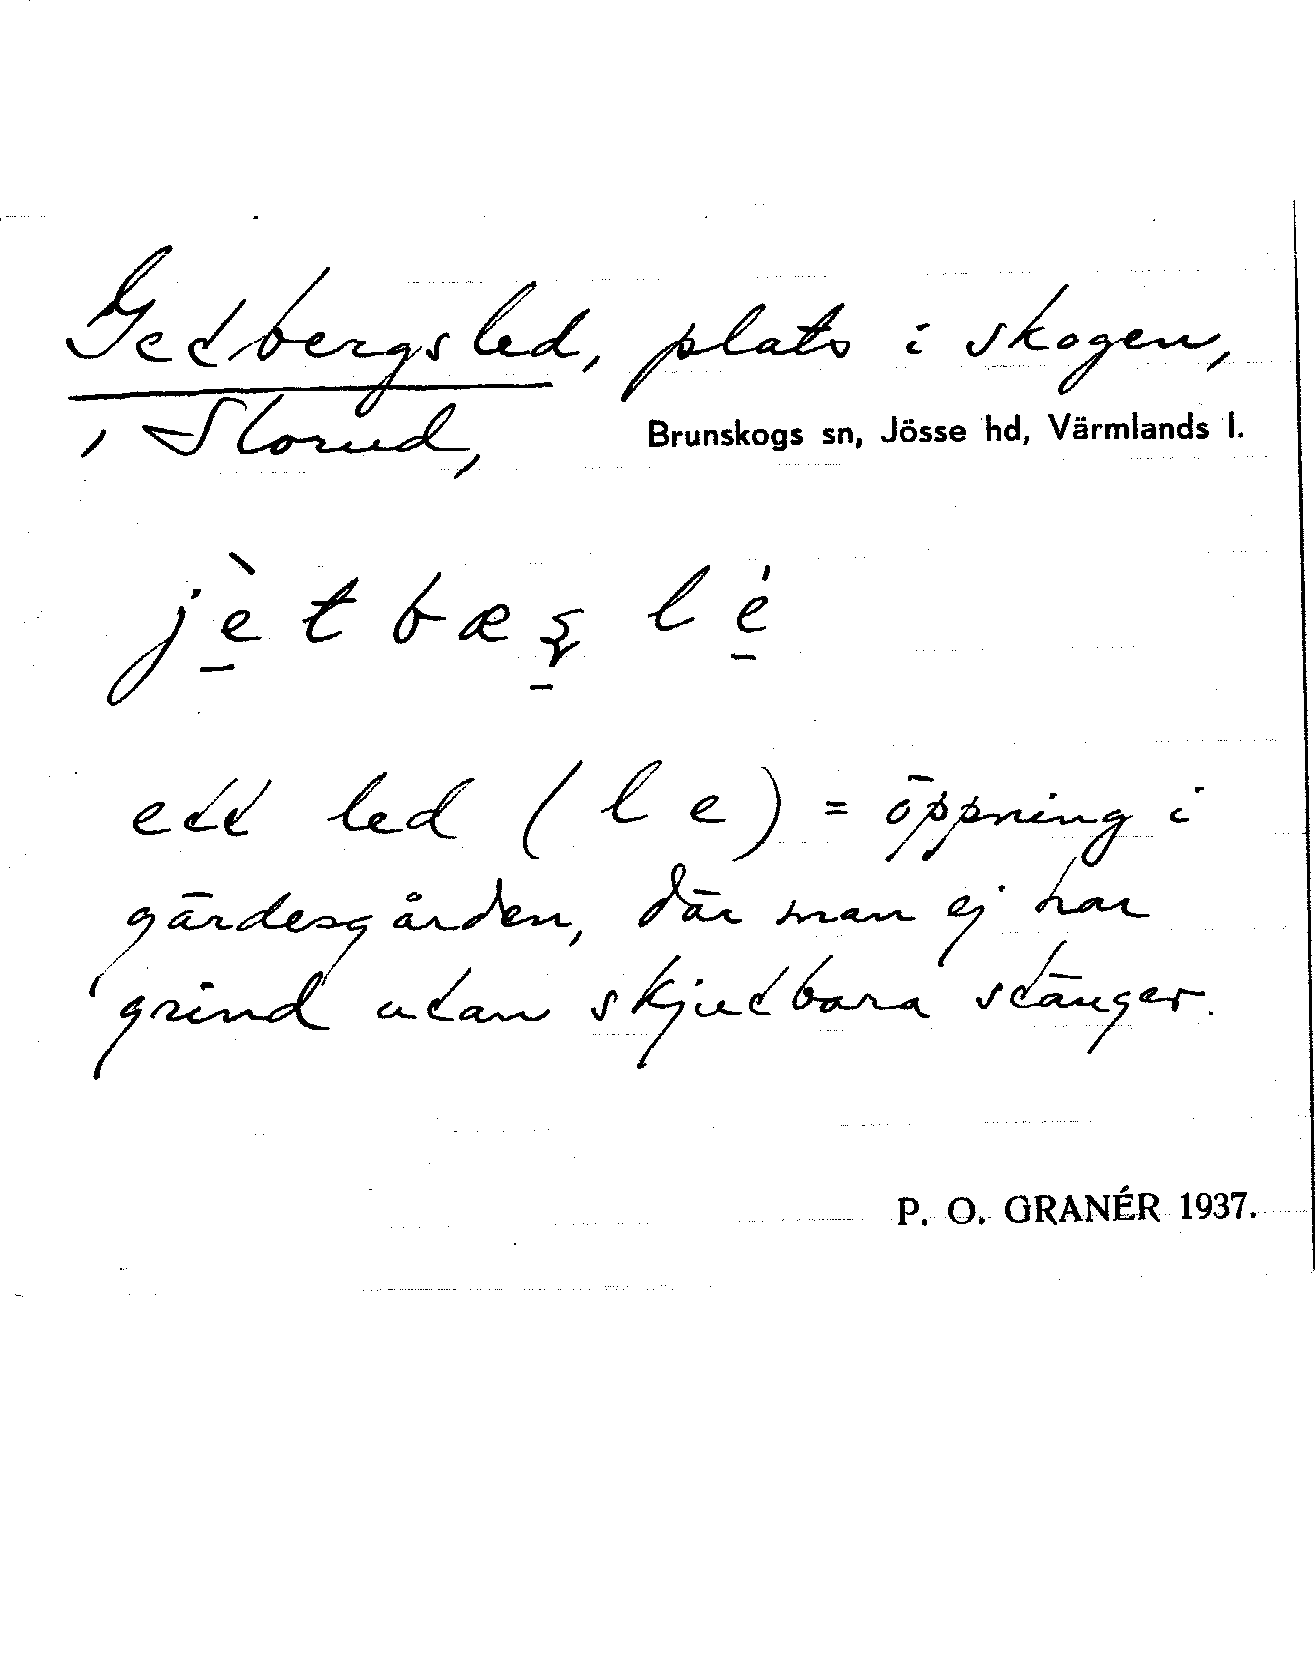 Getbergsled, plats i skogen,
i Slorud, Brunskogs sn, Jösse hd, Värmlands l.
jètbæʂ lé
ett led (le) = öppning i
gärdesgården, där man ej har
grind utan skjutbara stänger.
P. O. GRANÉR 1937.